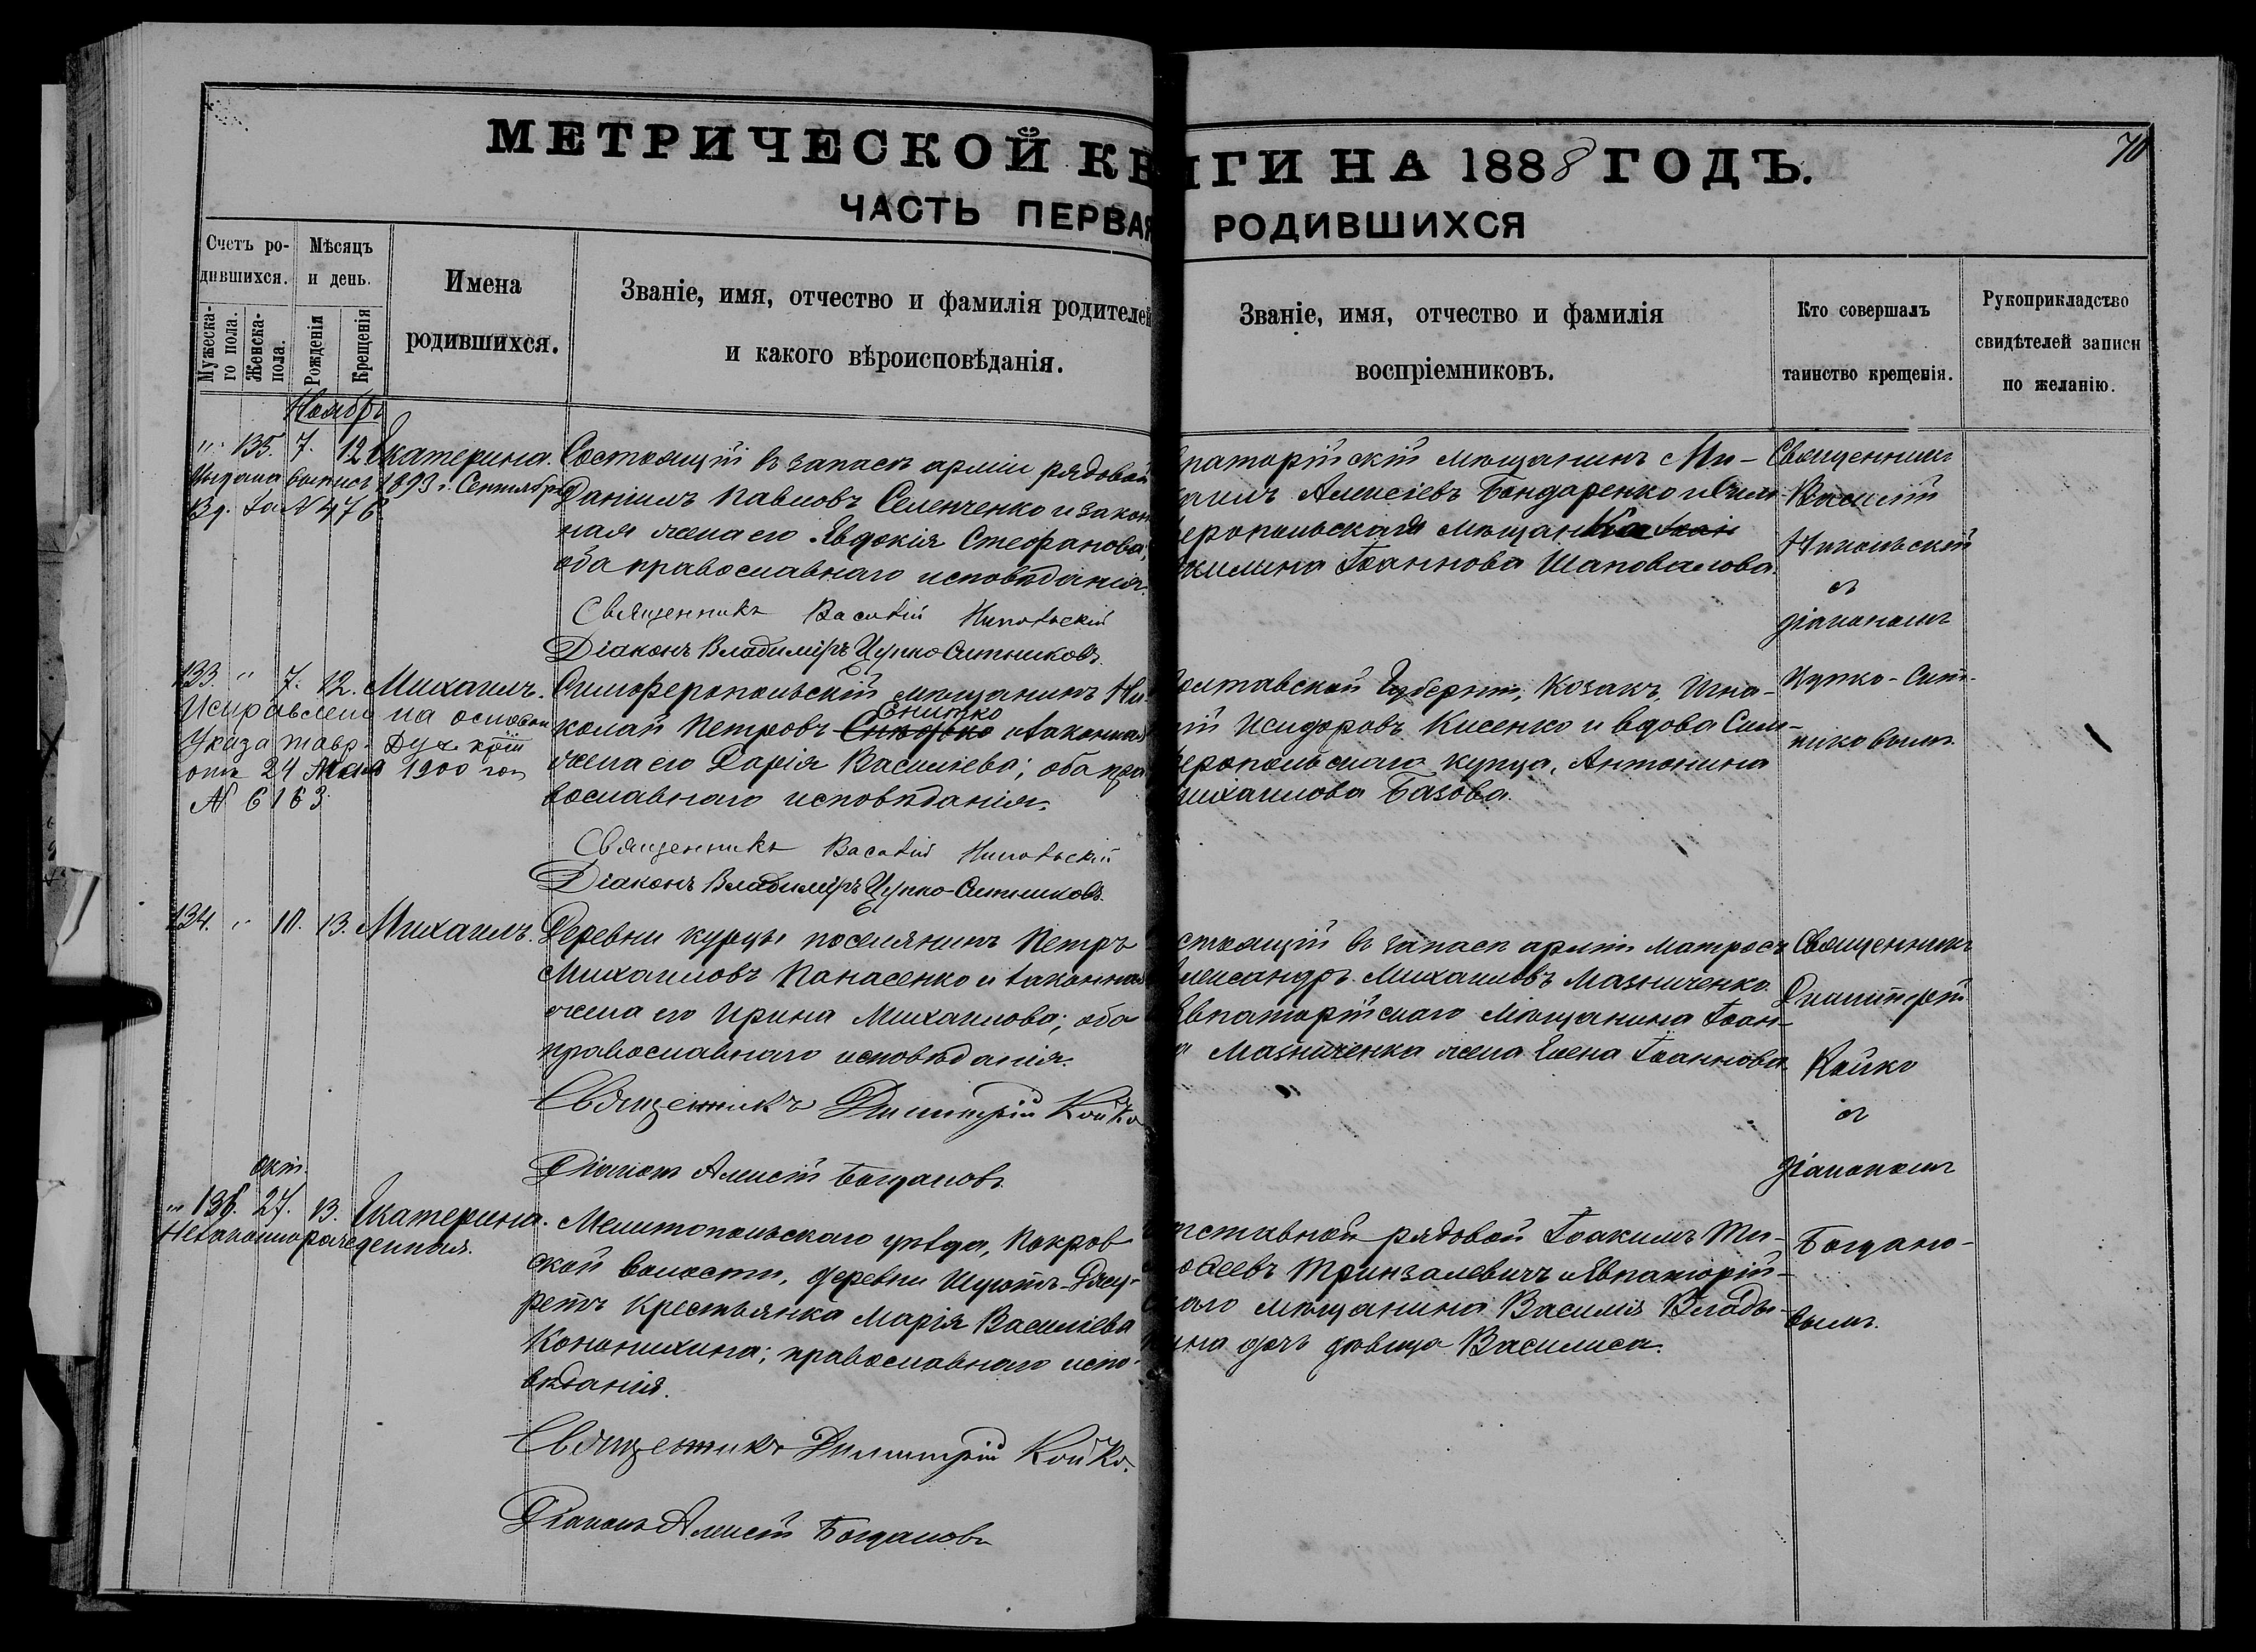 МЕТРИЧЕСКОЙ КНИГИ НА 1888 ГОДЪ.
70
ЧАСТЬ ПЕРВАЯ РОДИВШИХСЯ
Счетъ родившихся.
Мужеска-го пола.
Женска-пола.
Мѣсяцъ и день.
Рожденія
Крещенія
Имена
родившихся.
Званіе, имя, отчество и фамилія родителей
и какого вѣроисповѣданія.
Званіе, имя, отчество и фамилія
воспріемниковъ.
Кто совершалъ
таинство крещенія.
Рукоприкладство
свидѣтелей записи
по желанію.
Ноябрь
" 135. 7. 12 Екатерина.
Выдана выпись 1893 г. Сентября
13 д. За N 476
Состоящій въ запасѣ арміи рядовой
Даніилъ Павловъ Селенченко и закон
ная жена его Явдокія Стефанова,
оба православнаго исповѣданія.
Священникъ Василій Никольскій
Діаконъ Владиміръ Цупко-Ситниковъ.
впаторійскій мѣщанинъ Ми-
хаилъ Алексіевъ Бондаренко и Сим-
еропольская мѣщанка
килина Іоаннова Шаповалова.
Священникъ
Василій
Никольскій
съ
діакономъ
Цупко-Сит-
никовымъ.
133. " 7. 12. Михаилъ.
Исправлено на основан
Указа тавр. Дух. кон
отъ 24 Мая 1900 год
N 6163
Симферопольскій мѣщанинъ Ни-
колай Петровъ Снитко и законная
жена его Дарія Василіева; оба пра
вославнаго исповѣданія.
Священникъ Василій Никольскій
Діаконъ Владиміръ Цупко-Ситниковъ.
олтавской Губерніи, Козакъ, Игна-
ій Исидоровъ Кисенко и вдова Сим-
еропольскаго купца, Антонина
михаилова Базова.
134. " 10. 13. Михаилъ.
Деревни Курцы поселянинъ Петръ
Михаиловъ Панасенко и законная
жена его Ирина Михаилова; оба
православнаго исповѣданія.
Священникъ Димитрій Койко
Діаконъ Алексій Богдановъ.
стоящій въ запасѣ арміи матросъ
лександръ Михаиловъ Мазниченко
Явпаторійскаго мѣщанина Іоан-
а Мазниченка жена Елена Іоаннова
Священникъ
Димитрій
Койко
съ
діакономъ
Богдано-
вымъ.
окт.
" 136. 27. 13. Екатерина.
Незаконнорожденная.
Мелитопольскаго уѣзда, Покров
ской волости, деревни
Крестьянка Марія Василіева
Кононихина; православнаго испо-
вѣданія.
Священникъ Димитрій Койко.
Діаконъ Алексій Богдановъ
тставной рядовой Іоакимъ Ти-
офеевъ Тринзалевичъ и Явпаторій-
каго мѣщанина Василія Влады-
ина дочь дѣвица Василиса.